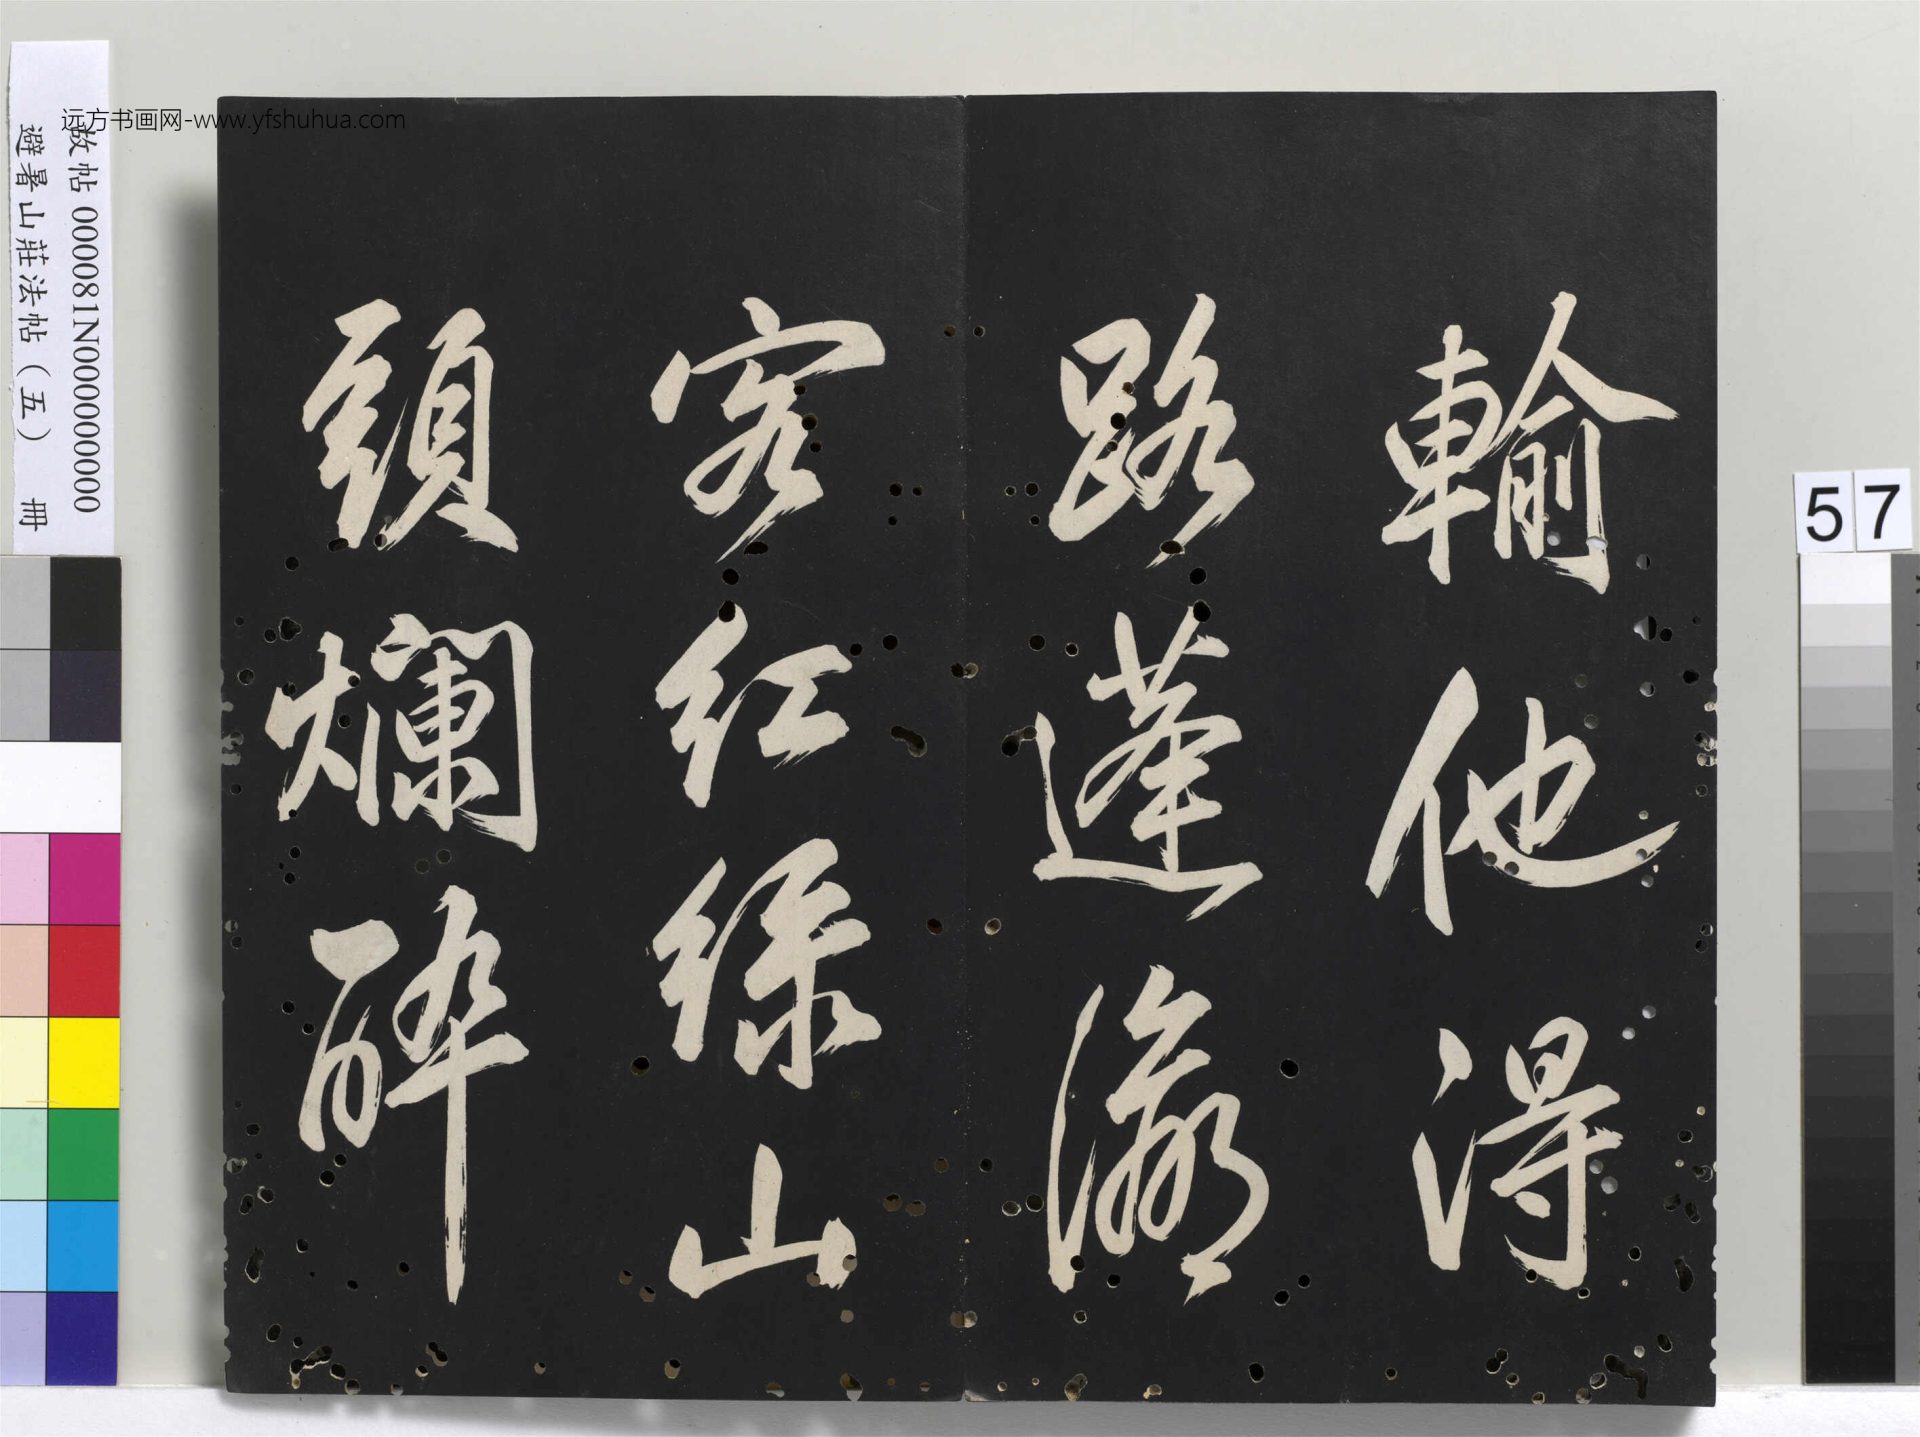 远方书画网-www.yfshuhua.com
輸他得
路蓬瀛
客紅綠山
頭爛醉
故帖 000081N000000000
避暑山莊法帖（五） 冊
57